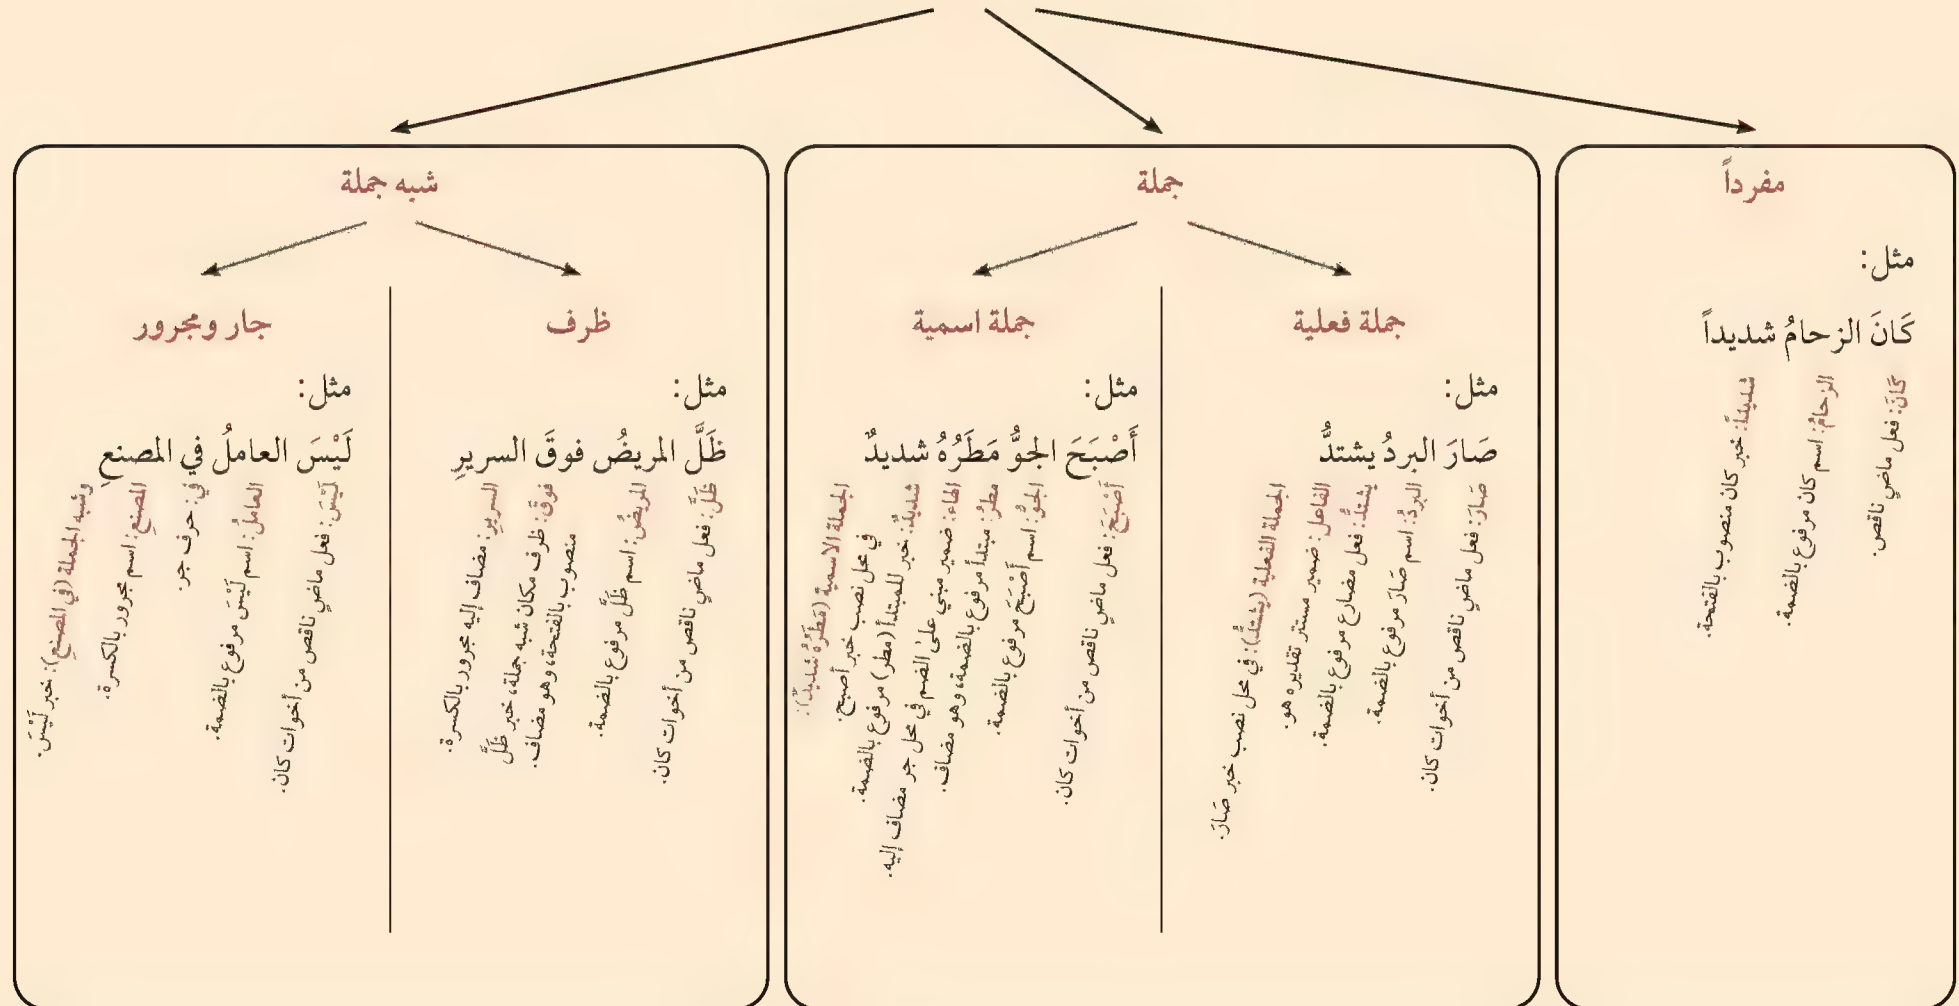 مفرداً
مثل:
كَانَ الزحامُ شديداً
كَانَ: فعل ماضي ناقص.
الزحامُ: اسم كان مرفوع بالضمة.
شديداً: خبر كان منصوب بالفتحة.
جملة
جملة فعلية
مثل:
صَارَ البردُ يشتدُّ
صَارَ: فعل ماضي ناقص من أخوات كان.
البردُ: اسم صَارَ مرفوع بالضمة.
يشتدُّ: فعل مضارع مرفوع بالضمة.
الفاعل: ضمير مستتر تقديره هو.
الجملة الفعلية (يشتدُّ): في محل نصب خبر صَارَ.
جملة اسمية
مثل:
أَصْبَحَ الجوُّ مَطَرُهُ شديدٌ
أَصْبَحَ: فعل ماضي ناقص من أخوات كان.
الجوُّ: اسم أَصْبَحَ مرفوع بالضمة.
مطرُ: مبتدأ مرفوع بالضمة، وهو مضاف.
الهاء: ضمير مبني على الضم في محل جر مضاف إليه.
شديدٌ: خبر للمبتدأ (مطر) مرفوع بالضمة.
الجملة الاسمية (مَطَرُهُ شديدٌ):
في محل نصب خبر أصبح.
شبه جملة
ظرف
مثل:
ظَلَّ المريضُ فوقَ السريرِ
ظَلَّ: فعل ماضي ناقص من أخوات كان.
المريضُ: اسم ظَلَّ مرفوع بالضمة.
فوقَ: ظرف مكان شبه جملة، خبر ظَلَّ
منصوب بالفتحة، وهو مضاف.
السريرِ: مضاف إليه مجرور بالكسرة.
جار ومجرور
مثل:
لَيْسَ العاملُ في المصنعِ
لَيْسَ: فعل ماضي ناقص من أخوات كان.
العاملُ: اسم لَيْسَ مرفوع بالضمة.
في: حرف جر.
المصنعِ: اسم مجرور بالكسرة.
وشبه الجملة (في المصنعِ): خبر لَيْسَ.